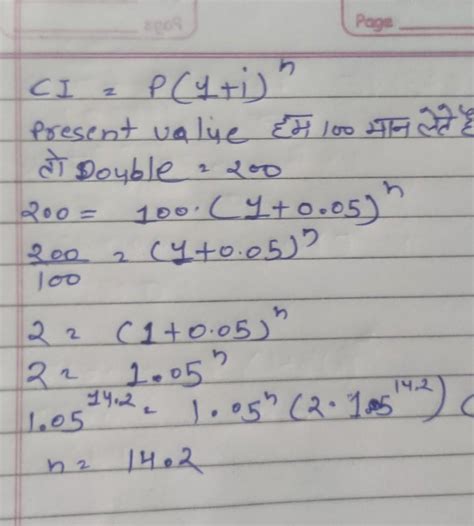 Page
CI = P(1+i)^n
Present value हम 100 मान लेते है
तो Double = 200
200 = 100·(1+0.05)^n
200/100 = (1+0.05)^n
2 = (1+0.05)^n
2 = 1.05^n
1.05^14.2 = 1.05^n (2·1.05^14.2) (
n = 14.2